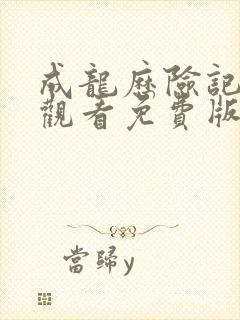 成龍歷險記
觀看免費版
當歸y